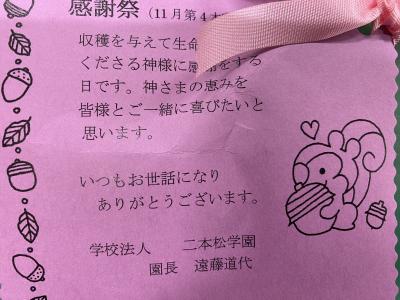 感謝祭（11月第4木
収穫を与えて生命
くださる神様に感謝をする
日です。神さまの恵みを
皆様とご一緒に喜びたいと
思います。
いつもお世話になり
ありがとうございます。
学校法人　二本松学園
園長　遠藤道代